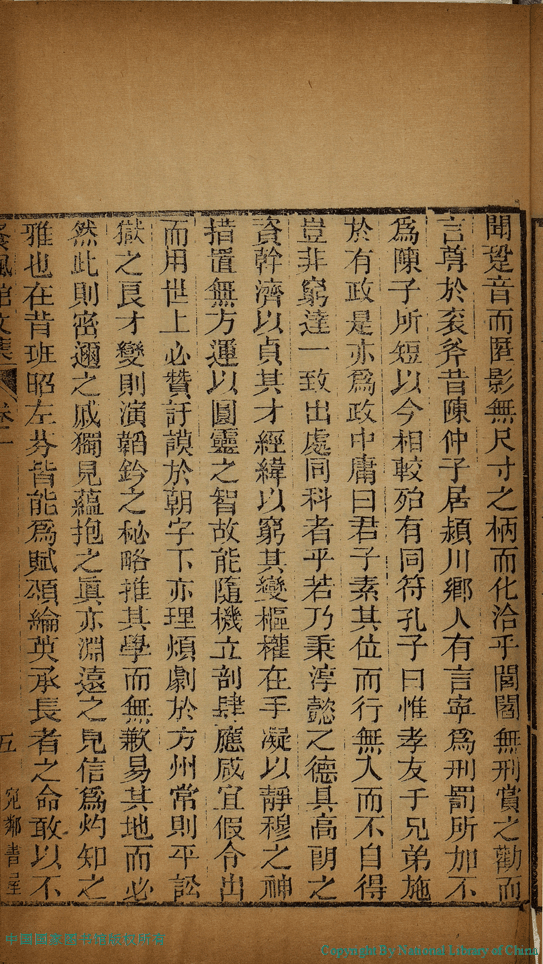 聞跫音而匿影無尺寸之柄而化洽乎閭閻無刑賞之勸而
言尊於袞斧昔陳仲子居潁川鄉人有言寧為刑罰所加不
為陳子所短以今相較殆有同符孔子曰惟孝友于兄弟施
於有政是亦為政中庸曰君子素其位而行無入而不自得
豈非窮達一致出處同科者乎若乃秉淳懿之德具高朗之
資幹濟以貞其才經緯以窮其變樞權在手凝以靜穆之神
措置無方運以圓靈之智故能隨機立剖肆應咸宜假令出
而用世上必贊訏謨於朝宁下亦理煩劇於方州常則平訟
獄之良才變則演韜鈐之秘略推其學而無歉易其地而必
然此則密邇之戚獨見蘊抱之真亦淵遠之見信為灼知之
雅也在昔班昭左芬皆能為賦頌綸英承長者之命敢以不
風館文集 卷一 五 宛鄰書屋
中国国家图书馆版权所有
Copyright By National Library of China